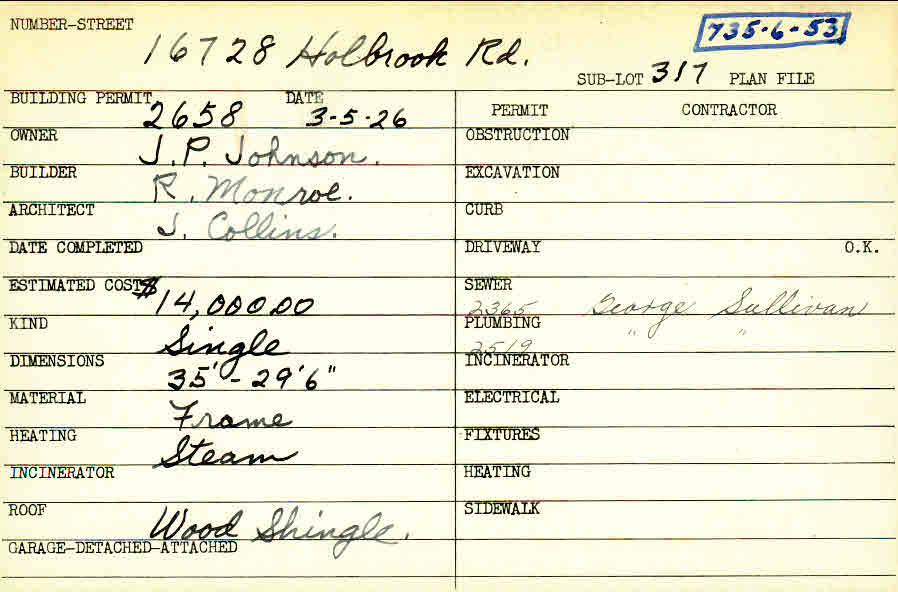 NUMBER-STREET
16728 Holbrook Rd.
735-6-53
SUB-LOT 317 PLAN FILE
BUILDING PERMIT 2658 DATE 3-5-26
OWNER J.P. Johnson.
BUILDER R. Monroe.
ARCHITECT J. Collins.
DATE COMPLETED
ESTIMATED COST $14,000.00
KIND Single
DIMENSIONS 35' - 29'6"
MATERIAL Frame
HEATING Steam
INCINERATOR
ROOF Wood Shingle.
GARAGE-DETACHED-ATTACHED
PERMIT CONTRACTOR
OBSTRUCTION
EXCAVATION
CURB
DRIVEWAY O.K.
SEWER
2365 George Sullivan
PLUMBING " "
2519
INCINERATOR
ELECTRICAL
FIXTURES
HEATING
SIDEWALK